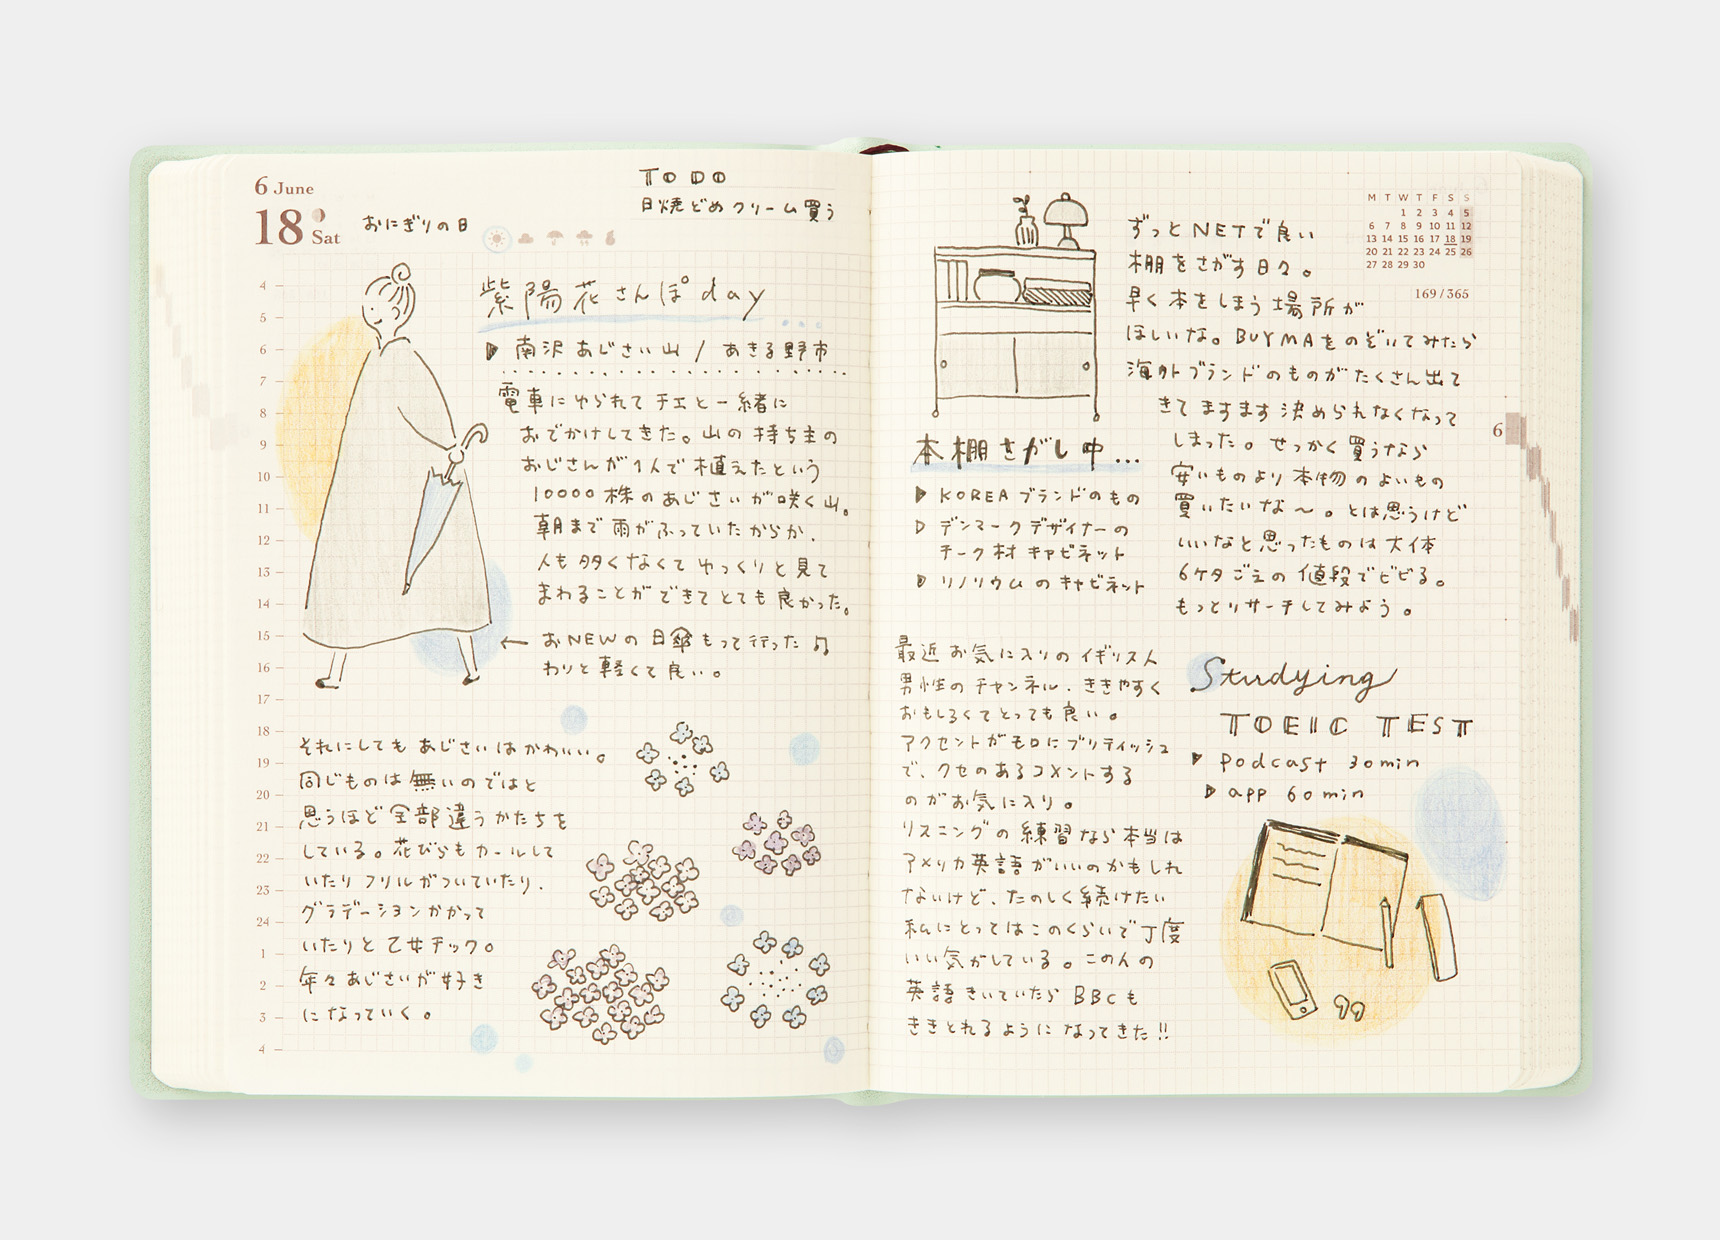 6 June
18 Sat
おにぎりの日
TO DO
日焼どめクリーム買う
4
5
6
7
8
9
10
11
12
13
14
15
16
17
18
19
20
21
22
23
24
1
2
3
4
紫陽花さんぽday
南沢あじさい山 / あきる野市
電車にゆられてチエと一緒に
おでかけしてきた。山の持ち主の
おじさんが1人で植えたという
10000株のあじさいが咲く山。
朝まで雨がふっていたからか、
人も多くなくてゆっくりと見て
まわることができてとても良かった。
← おNEWの日傘もって行った♫
わりと軽くて良い。
それにしてもあじさいはかわいい。
同じものは無いのではと
思うほど全部違うかたちを
している。花びらもカールして
いたりフリルがついていたり、
グラデーションかかって
いたりと乙女チック。
年々あじさいが好き
になっていく。
ずっとNETで良い
棚をさがす日々。
早く本をしまう場所が
ほしいな。BUYMAをのぞいてみたら
海外ブランドのものがたくさん出て
きてますます決められなくなって
しまった。せっかく買うなら
安いものより本物のよいもの
買いたいな〜。とは思うけど
いいなと思ったものは大体
6ケタごえの値段でビビる。
もっとリサーチしてみよう。
M T W T F S S
1 2 3 4 5
6 7 8 9 10 11 12
13 14 15 16 17 18 19
20 21 22 23 24 25 26
27 28 29 30
169/365
6
本棚さがし中...
KOREAブランドのもの
デンマークデザイナーの
チーク材キャビネット
リノリウムのキャビネット
最近お気に入りのイギリス人
男性のチャンネル、ききやすく
おもしろくてとっても良い。
アクセントがモロにブリティッシュ
で、クセのあるコメントする
のがお気に入り。
リスニングの練習なら本当は
アメリカ英語がいいのかもしれ
ないけど、たのしく続けたい
私にとってはこのくらいで丁度
いい気がしている。この人の
英語きいていたらBBCも
ききとれるようになってきた!!
Studying
TOEIC TEST
podcast 30min
app 60min